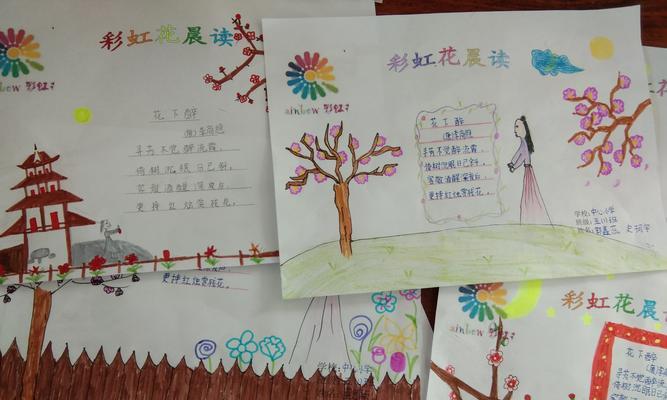 彩虹花晨读
ainbow 彩虹
花下醉
(唐)李商隐
寻芳不觉醉流霞,
倚树沉眠日已斜。
客散酒醒深夜后,
更持红烛赏残花。
彩虹花晨读
ainbow 彩虹
花下醉
(唐李商隐)
寻芳不觉醉流霞,
倚树沉眠日已斜。
客散酒醒深夜后,
更持红烛赏残花。
学校:中心小学
班级:
姓名:
更持红烛赏残花。
学校:中心小学
彩虹花晨读
ainbow 彩虹
花下醉
(唐)李商隐
寻芳不觉醉流霞
倚树沉眠日已斜